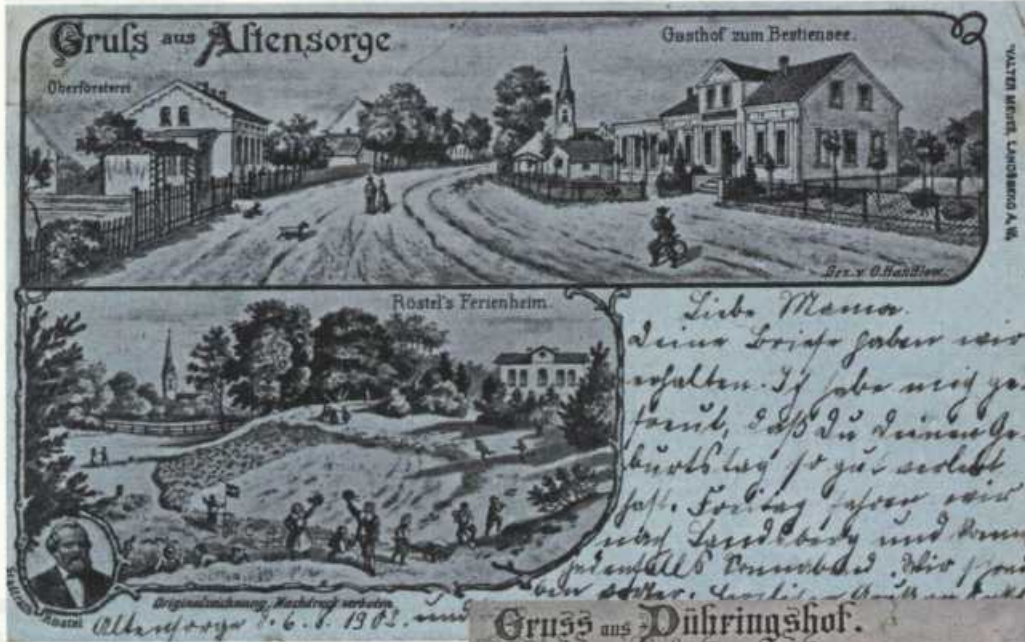 Gruß aus Altensorge
Oberförsterei
Gasthof zum Bestiensee.
WALTER MEWES, LANDSBERG A. W.
Gez. v. O. Handtow.
Röstel's Ferienheim.
Stadtrath Röstel
Originalzeichnung, Nachdruck verboten
Liebe Mama.
Deine Briefe haben wir
erhalten. Ich habe mich ge-
freut, daß Du Deinen Ge-
burtstag so gut verlebt
hast. Freitag fahren wir
nach Landsberg und
jedenfalls Sonnabend. Wir
Altensorge 1902. und
Gruss aus Dühringshof.